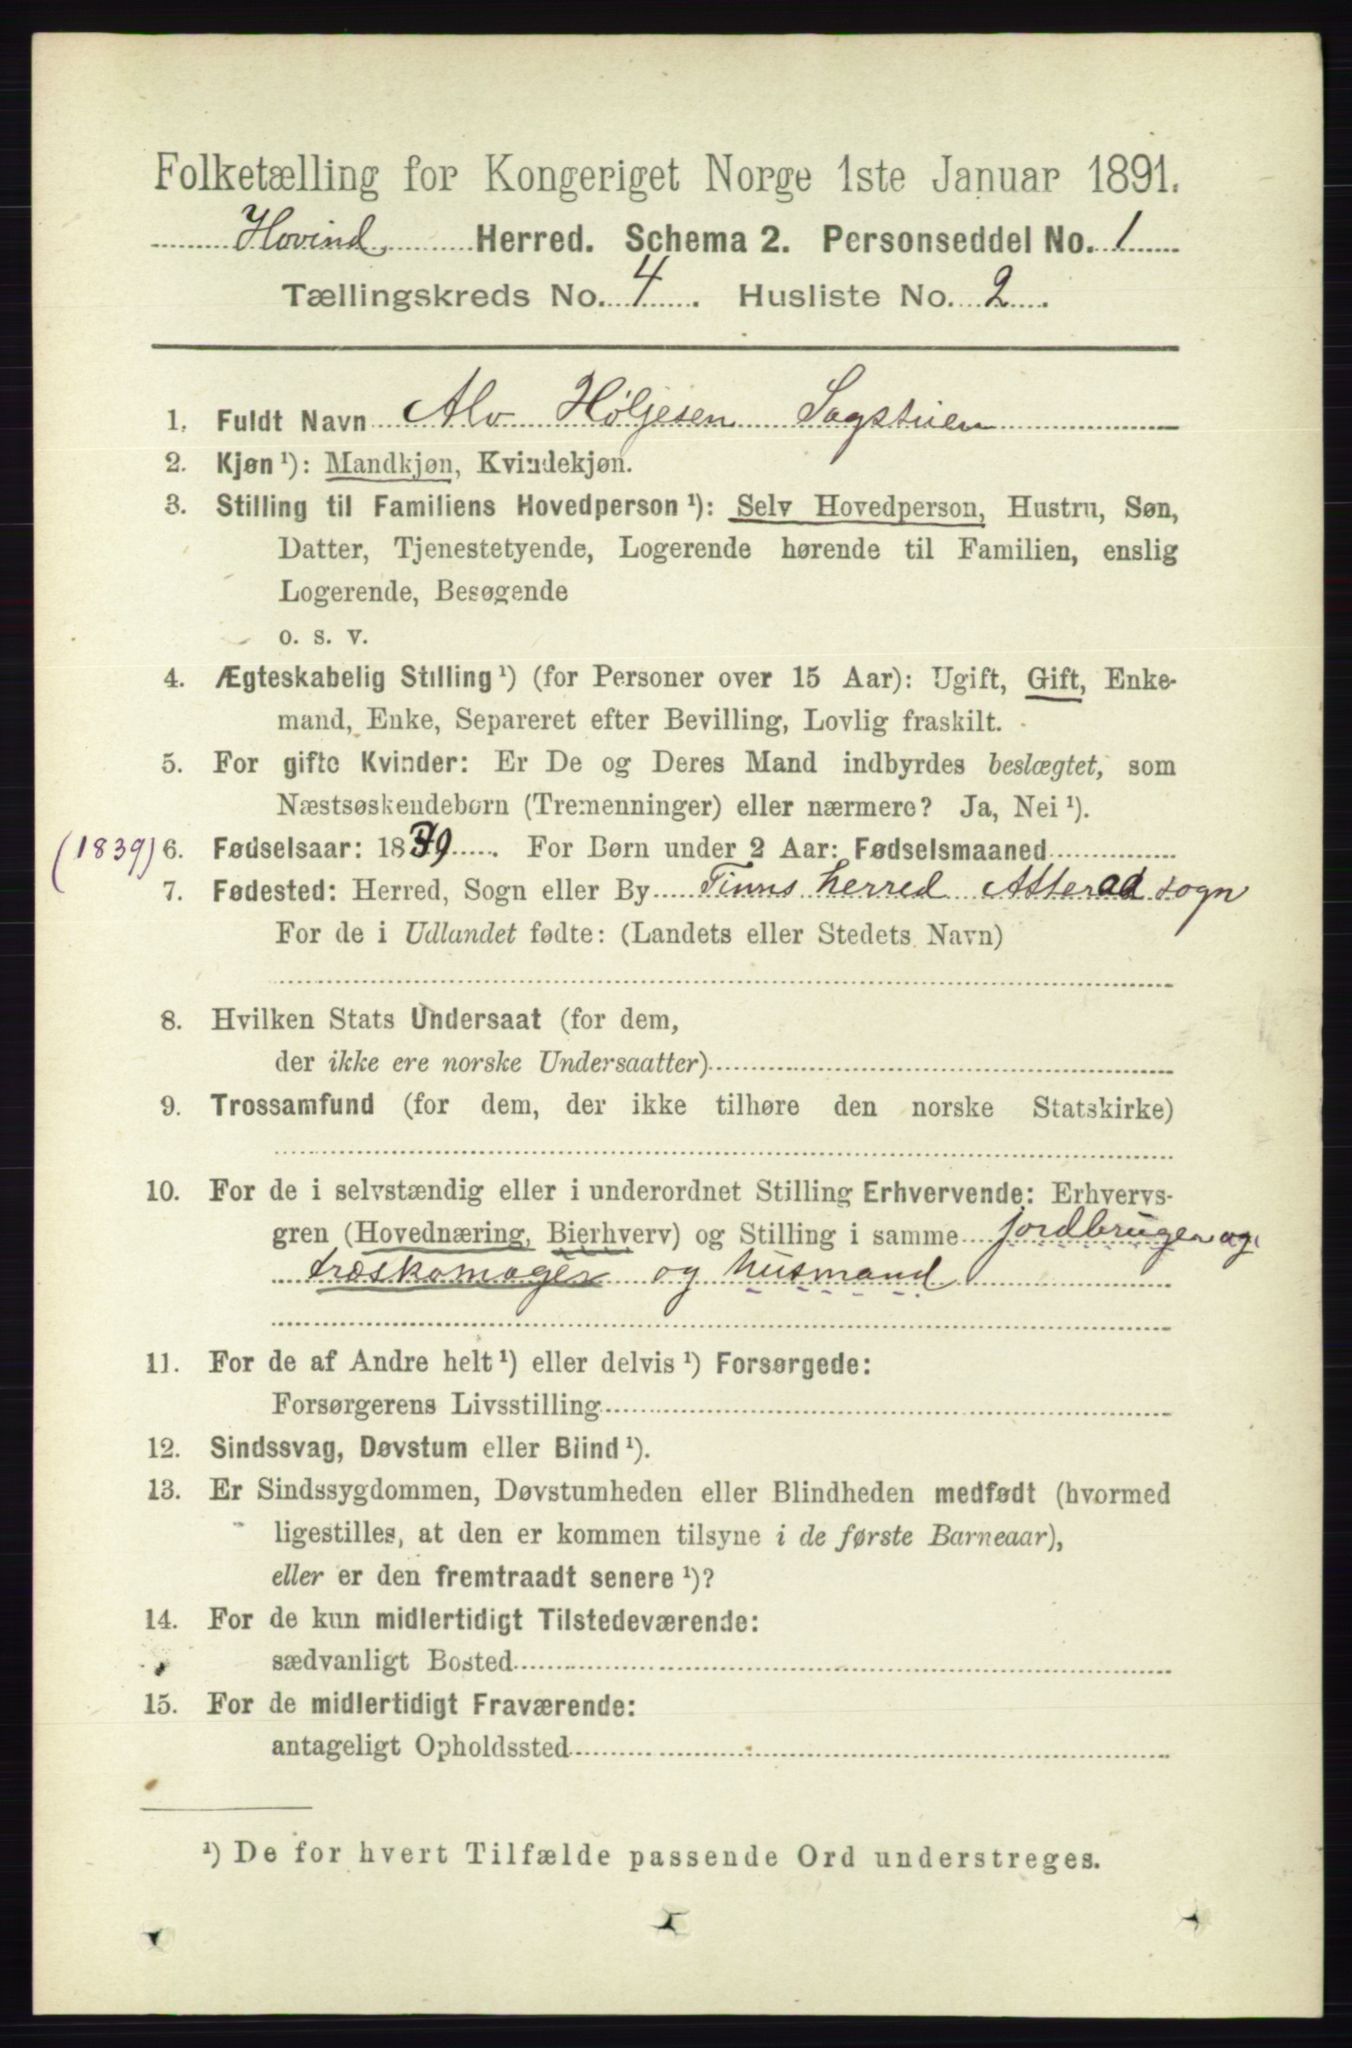 Folketælling for Kongeriget Norge 1ste Januar 1891.
Hovind Herred. Schema 2. Personseddel No. 1
Tællingskreds No. 4. Husliste No. 2.
1. Fuldt Navn Alv Høljesen Sagstuen
2. Kjøn ¹): Mandkjøn, Kvindekjøn.
3. Stilling til Familiens Hovedperson ¹): Selv Hovedperson, Hustru, Søn,
Datter, Tjenestetyende, Logerende hørende til Familien, enslig
Logerende, Besøgende
o. s. v.
4. Ægteskabelig Stilling ¹) (for Personer over 15 Aar): Ugift, Gift, Enke-
mand, Enke, Separeret efter Bevilling, Lovlig fraskilt.
5. For gifte Kvinder: Er De og Deres Mand indbyrdes beslægtet, som
Næstsøskendebørn (Tremenninger) eller nærmere? Ja, Nei ¹).
(1839) 6. Fødselsaar: 1839. For Børn under 2 Aar: Fødselsmaaned
7. Fødested: Herred, Sogn eller By Tinns herred Atterad sogn
For de i Udlandet fødte: (Landets eller Stedets Navn)
8. Hvilken Stats Undersaat (for dem,
der ikke ere norske Undersaatter)
9. Trossamfund (for dem, der ikke tilhøre den norske Statskirke)
10. For de i selvstændig eller i underordnet Stilling Erhvervende: Erhvervs-
gren (Hovednæring, Bierhverv) og Stilling i samme jordbruger og
træskomager og husmand
11. For de af Andre helt ¹) eller delvis ¹) Forsørgede:
Forsørgerens Livsstilling
12. Sindssvag, Døvstum eller Blind ¹).
13. Er Sindssygdommen, Døvstumheden eller Blindheden medfødt (hvormed
ligestilles, at den er kommen tilsyne i de første Barneaar),
eller er den fremtraadt senere ¹)?
14. For de kun midlertidigt Tilstedeværende:
sædvanligt Bosted
15. For de midlertidigt Fraværende:
antageligt Opholdssted
¹) De for hvert Tilfælde passende Ord understreges.